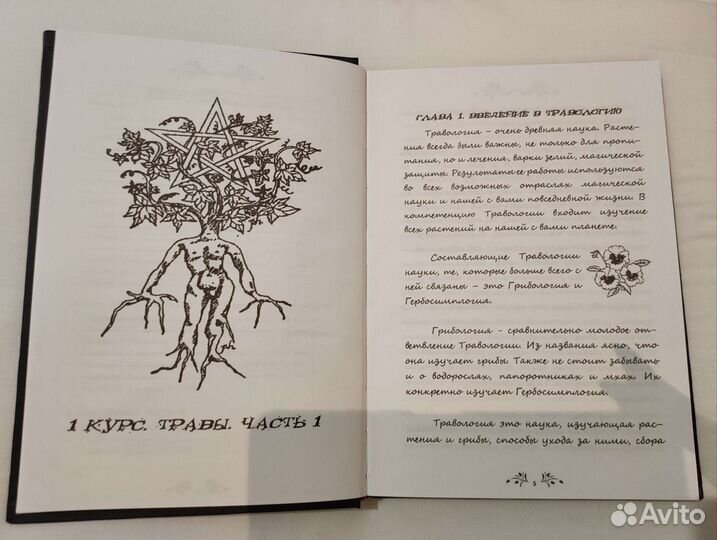 1 КУРС. ТРАВЫ. ЧАСТЬ 1
ГЛАВА 1. ВВЕДЕНИЕ В ТРАВОЛОГИЮ
Травология – очень древняя наука. Расте-
ния всегда были важны, не только для пропи-
тания, но и лечения, варки зелий, магической
защиты. Результаты ее работы используются
во всех возможных отраслях магической
науки и нашей с вами повседневной жизни. В
компетенцию Травологии входит изучение
всех растений на нашей с вами планете.
Составляющие Травологии
науки, те, которые больше всего с
ней связаны – это Грибология и
Гербосимплогия.
Грибология - сравнительно молодое от-
ветвление Травологии. Из названия ясно, что
она изучает грибы. Также не стоит забывать
и о водорослях, папоротниках и мхах. Их
конкретно изучает Гербосимплогия.
Травология это наука, изучающая рас-
тения и грибы, способы ухода за ними, сбора
5
Avito